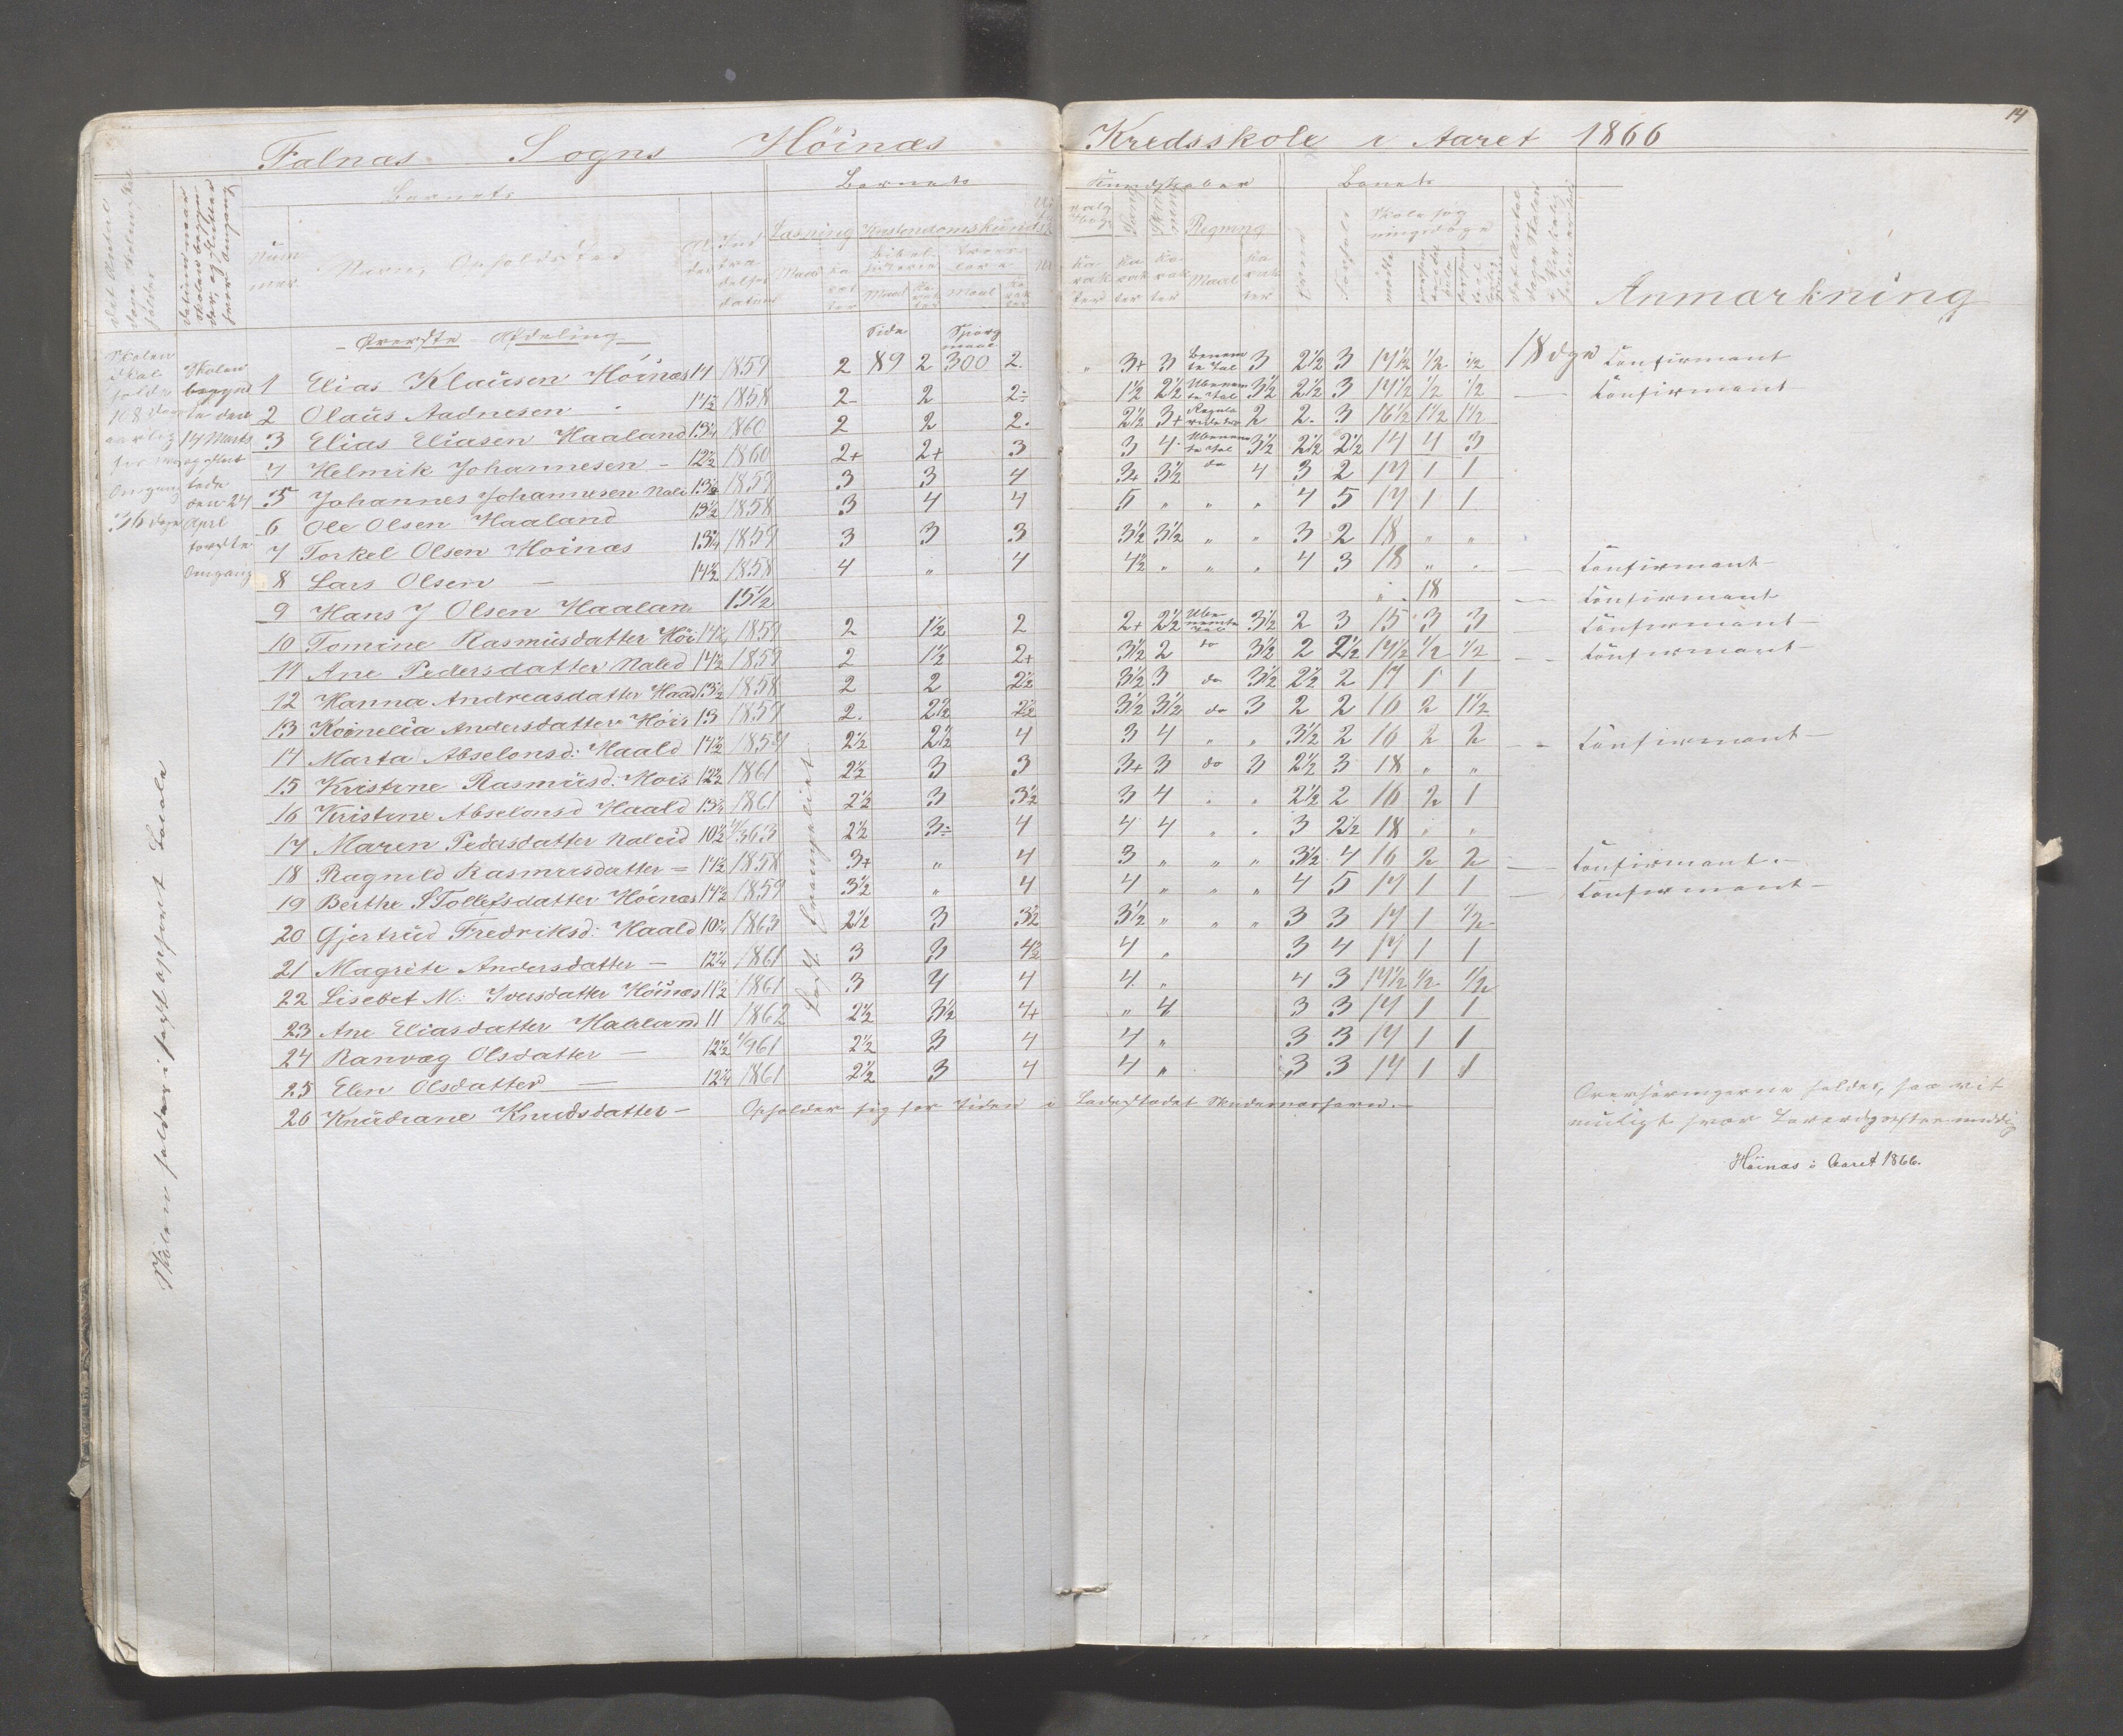 14
Falnæs Sogns Höinæs Kredsskole i Aaret 1866
Barnets
Barnets Kundskaber
Barnets
Læsning Kristendomskundskab
Sang Regning
Evne Forhold
Skolesøgningsdage
Anmærkning
Nummer Navn, Opholdssted
Maal Maal Maal Maal
Øverste Afdeling
Side Spörgsmaal
Skolen skal holdes 108 dage aarlig
Omgang 36 dage
Skolen begyndte den 14 Marts og sluttede den 24 April første Omgang
Skolen holdes i fast opsent Locale
Læst Evangeliet
1 Elias Klausen Höinæs 14 1859 2 89 2 300 2. " 3+ 3 Benævnte Tal 3 2½ 3 17½ ½ ½ 18 dage Confirmant
2 Olaus Aadnesen 14½ 1858 2 2 2÷ 1½ 2½ Ubenævnte Tal 3½ 2½ 3 17½ ½ ½ — Confirmant
3 Elias Eliasen Haaland 13¼ 1860 2 2 2. 2½ 3+ Regula de tri 2 2. 3 16½ 1½ 1½
4 Helmik Johannesen — 12½ 1860 2+ 2+ 3 3 4. Ubenævnte Tal 3½ 2½ 2½ 14 4 3
5 Johannes Johannesen Nale 13½ 1859 3 3 4 3+ 3½ do 4 3 2 17 1 1
6 Ole Olsen Haaland 13½ 1858 3 4 4 5 " " " 4 5 17 1 1
7 Torkel Olsen Höinæs 13¼ 1859 3 3 3 3½ 3½ " " 3 2 18 " "
8 Lars Olsen — 14½ 1858 4 " 4 4½ " " " 4 3 18 " " — Confirmant
9 Hans J Olsen Haaland 15½ " 18 — Confirmant
10 Tomine Rasmusdatter Höi 14½ 1859 2 1½ 2 2+ 2½ Ubenævnte Tal 3½ 2 3 15 3 3 — Confirmant
11 Ane Pedersdatter Naled 14½ 1859 2 1½ 2+ 3½ 2 do 3½ 2 2½ 17½ ½ ½ — Confirmant
12 Hanna Andreasdatter Haad 13½ 1858 2 2 2½ 3½ 3 do 3½ 2½ 2 17 1 1
13 Kornelia Andersdatter Höis 13 1859 2. 2½ 2½ 3½ 3½ do 3 2 2 16 2 1½
14 Marta Abselonsd: Haald 14½ 1859 2½ 2½ 4 3 4 " " 3½ 2 16 2 2 — Confirmant
15 Kristine Rasmusd: Hois 12½ 1861 2½ 3 3 3+ 3 do 3 2½ 3 18 " "
16 Kristine Abselonsd Haald 13¼ 1861 2½ 3 3½ 3 4 " " 2½ 2 16 2 1
17 Maren Pedersdatter Naleid 10½ 63 2½ 3÷ 4 4 4 " " 3 2½ 18 " "
18 Ragnild Rasmusdatter — 14½ 1858 3+ " 4 3 " " " 3½ 4 16 2 2 — Confirmant
19 Berthe S Tollefsdatter Höinæs 14½ 1859 3½ " 4 4 " " " 4 5 17 1 1 — Confirmant
20 Gjertrud Fredriksd: Haald 10¼ 1863 2½ 3 3½ 3½ " " " 3 3 17 1 ½
21 Magrete Andersdatter — 12¼ 1861 3 3 4½ 4 " 3 4 17 1 1
22 Lisebet M: Iversdatter Höinæs 11½ 1861 3 4 4 4 " 4 3 17½ ½ ½
23 Ane Eliasdatter Haaland 11 1862 2½ 3½ 4+ " 4 3 3 17 1 1
24 Ranvæg Olsdatter — 12½ 61 2½ 3 4 4 " 3 3 17 1 1
25 Elen Olsdatter — 12¼ 1861 2½ 3 4 4 " 3 3 17 1 1
26 Knudiane Knudsdatter — Opholder sig for Tiden i Ladestedet Skudesneshavn.
Overhøringerne holdes, saa vit
muligt hver Løverdageftermiddag
Höinæs i Aaret 1866.